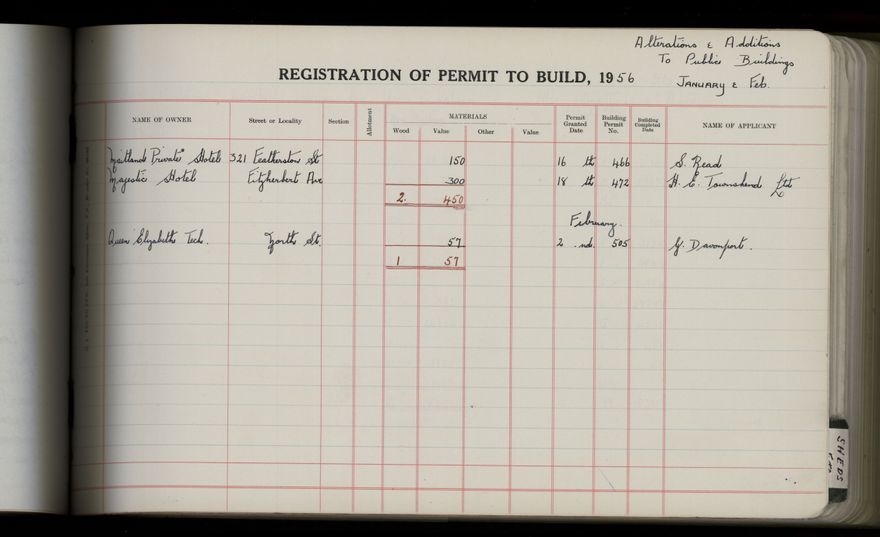 Alterations & Additions
To Public Buildings
REGISTRATION OF PERMIT TO BUILD, 1956
January & Feb.
NAME OF OWNER Street or Locality Section Allotment MATERIALS Permit Granted Date Building Permit No. Building Completed Date NAME OF APPLICANT
Wood Value Other Value
Maitland Private Hotel 321 Featherston St 150 16 th 466 S. Read
Majestic Hotel Fitzherbert Ave 300 18 th 472 H. E. Townshend Ltd
2. 450
February.
Queen Elizabeth Tech. North St. 57 2 nd. 505 G. Davenport.
1 57
SHEDS